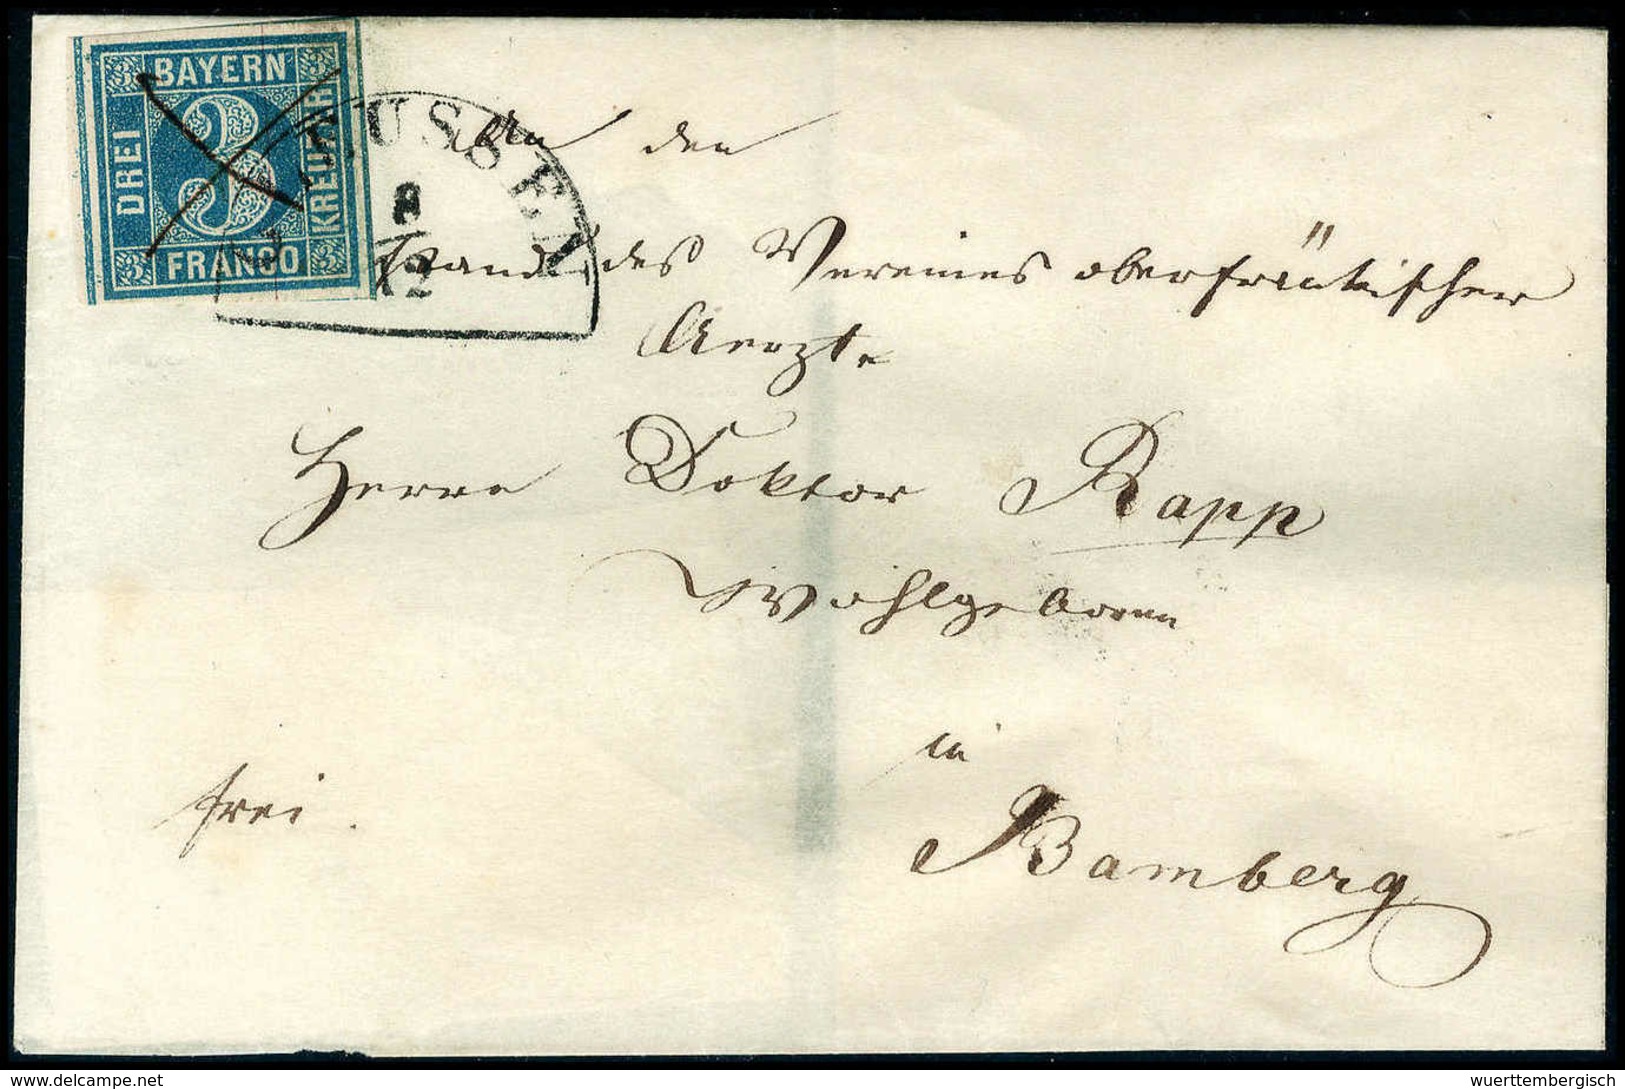 BAYERN
3 3
DREI 3 KREUZER
FRANCO
3 3
8
12
An den
Vorstand des Vereines oberfränkischer
Aerzte
Herrn Doktor Rapp
Wohlgeboren
in
frei.
Bamberg
wuerttembergisch